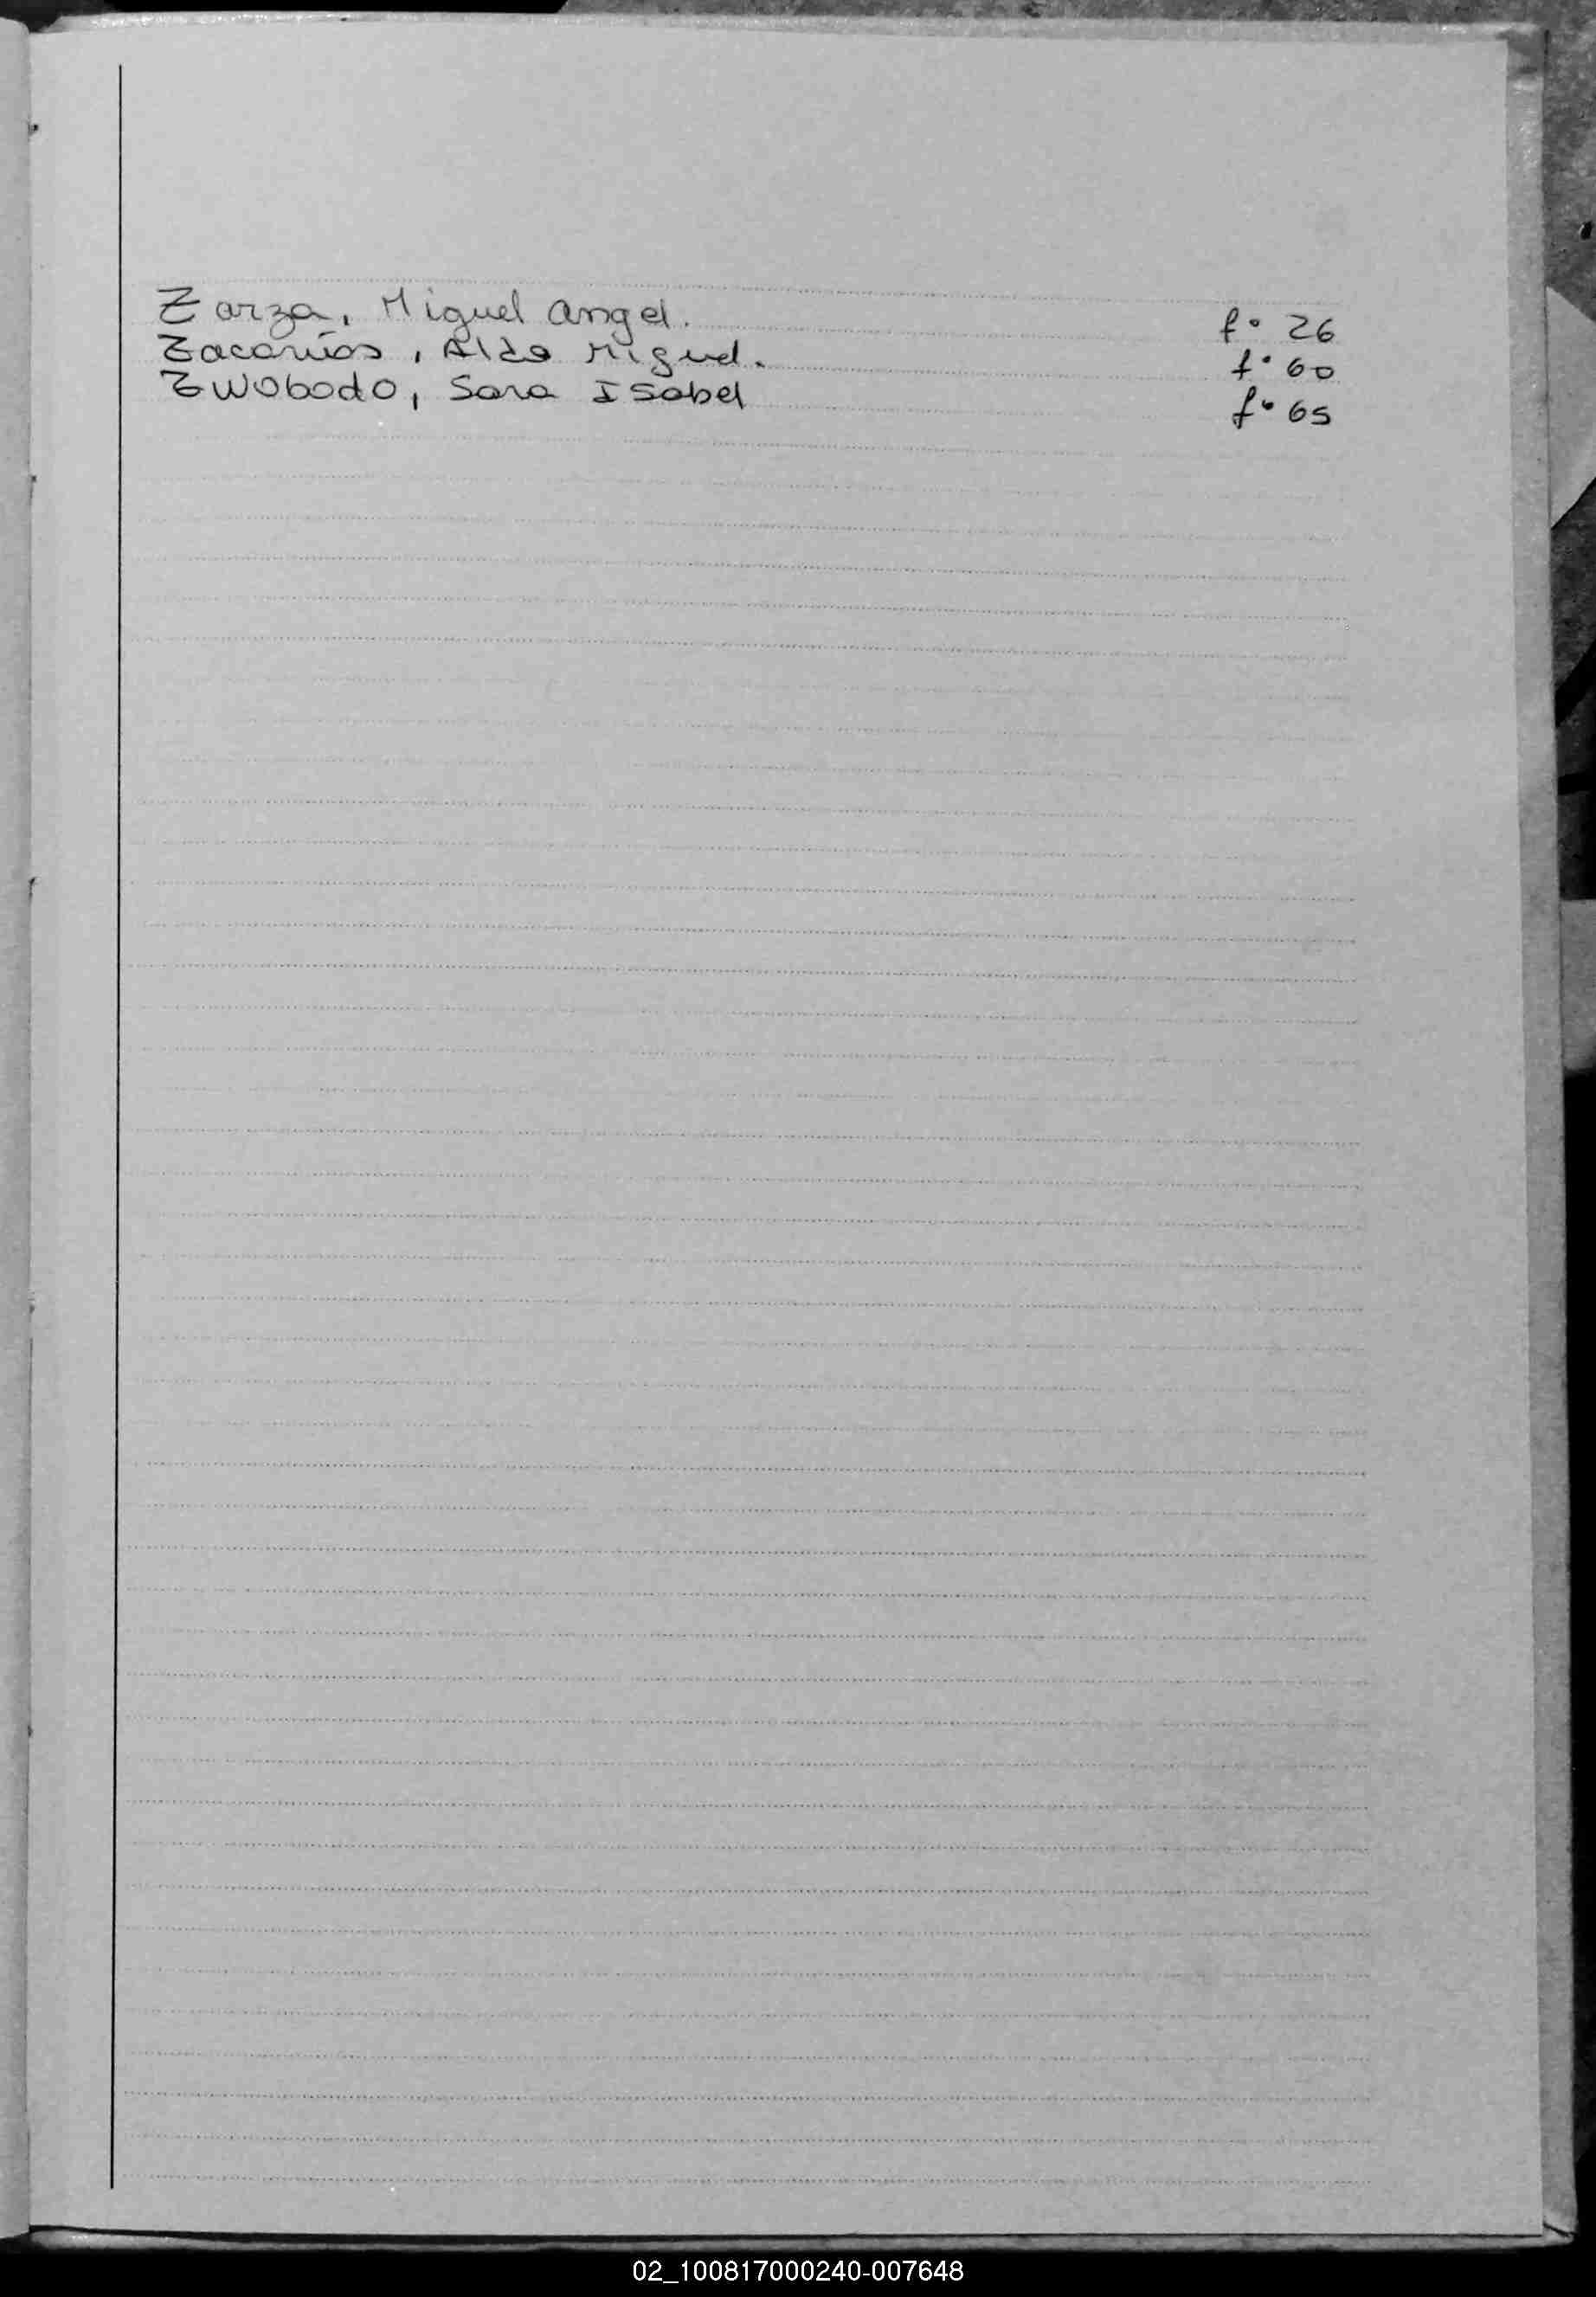 Zarza, Miguel Angel. f° 26
Zacarías, Aldo Miguel. f° 60
Zwobodo, Sara Isabel f° 65
02_100817000240-007648